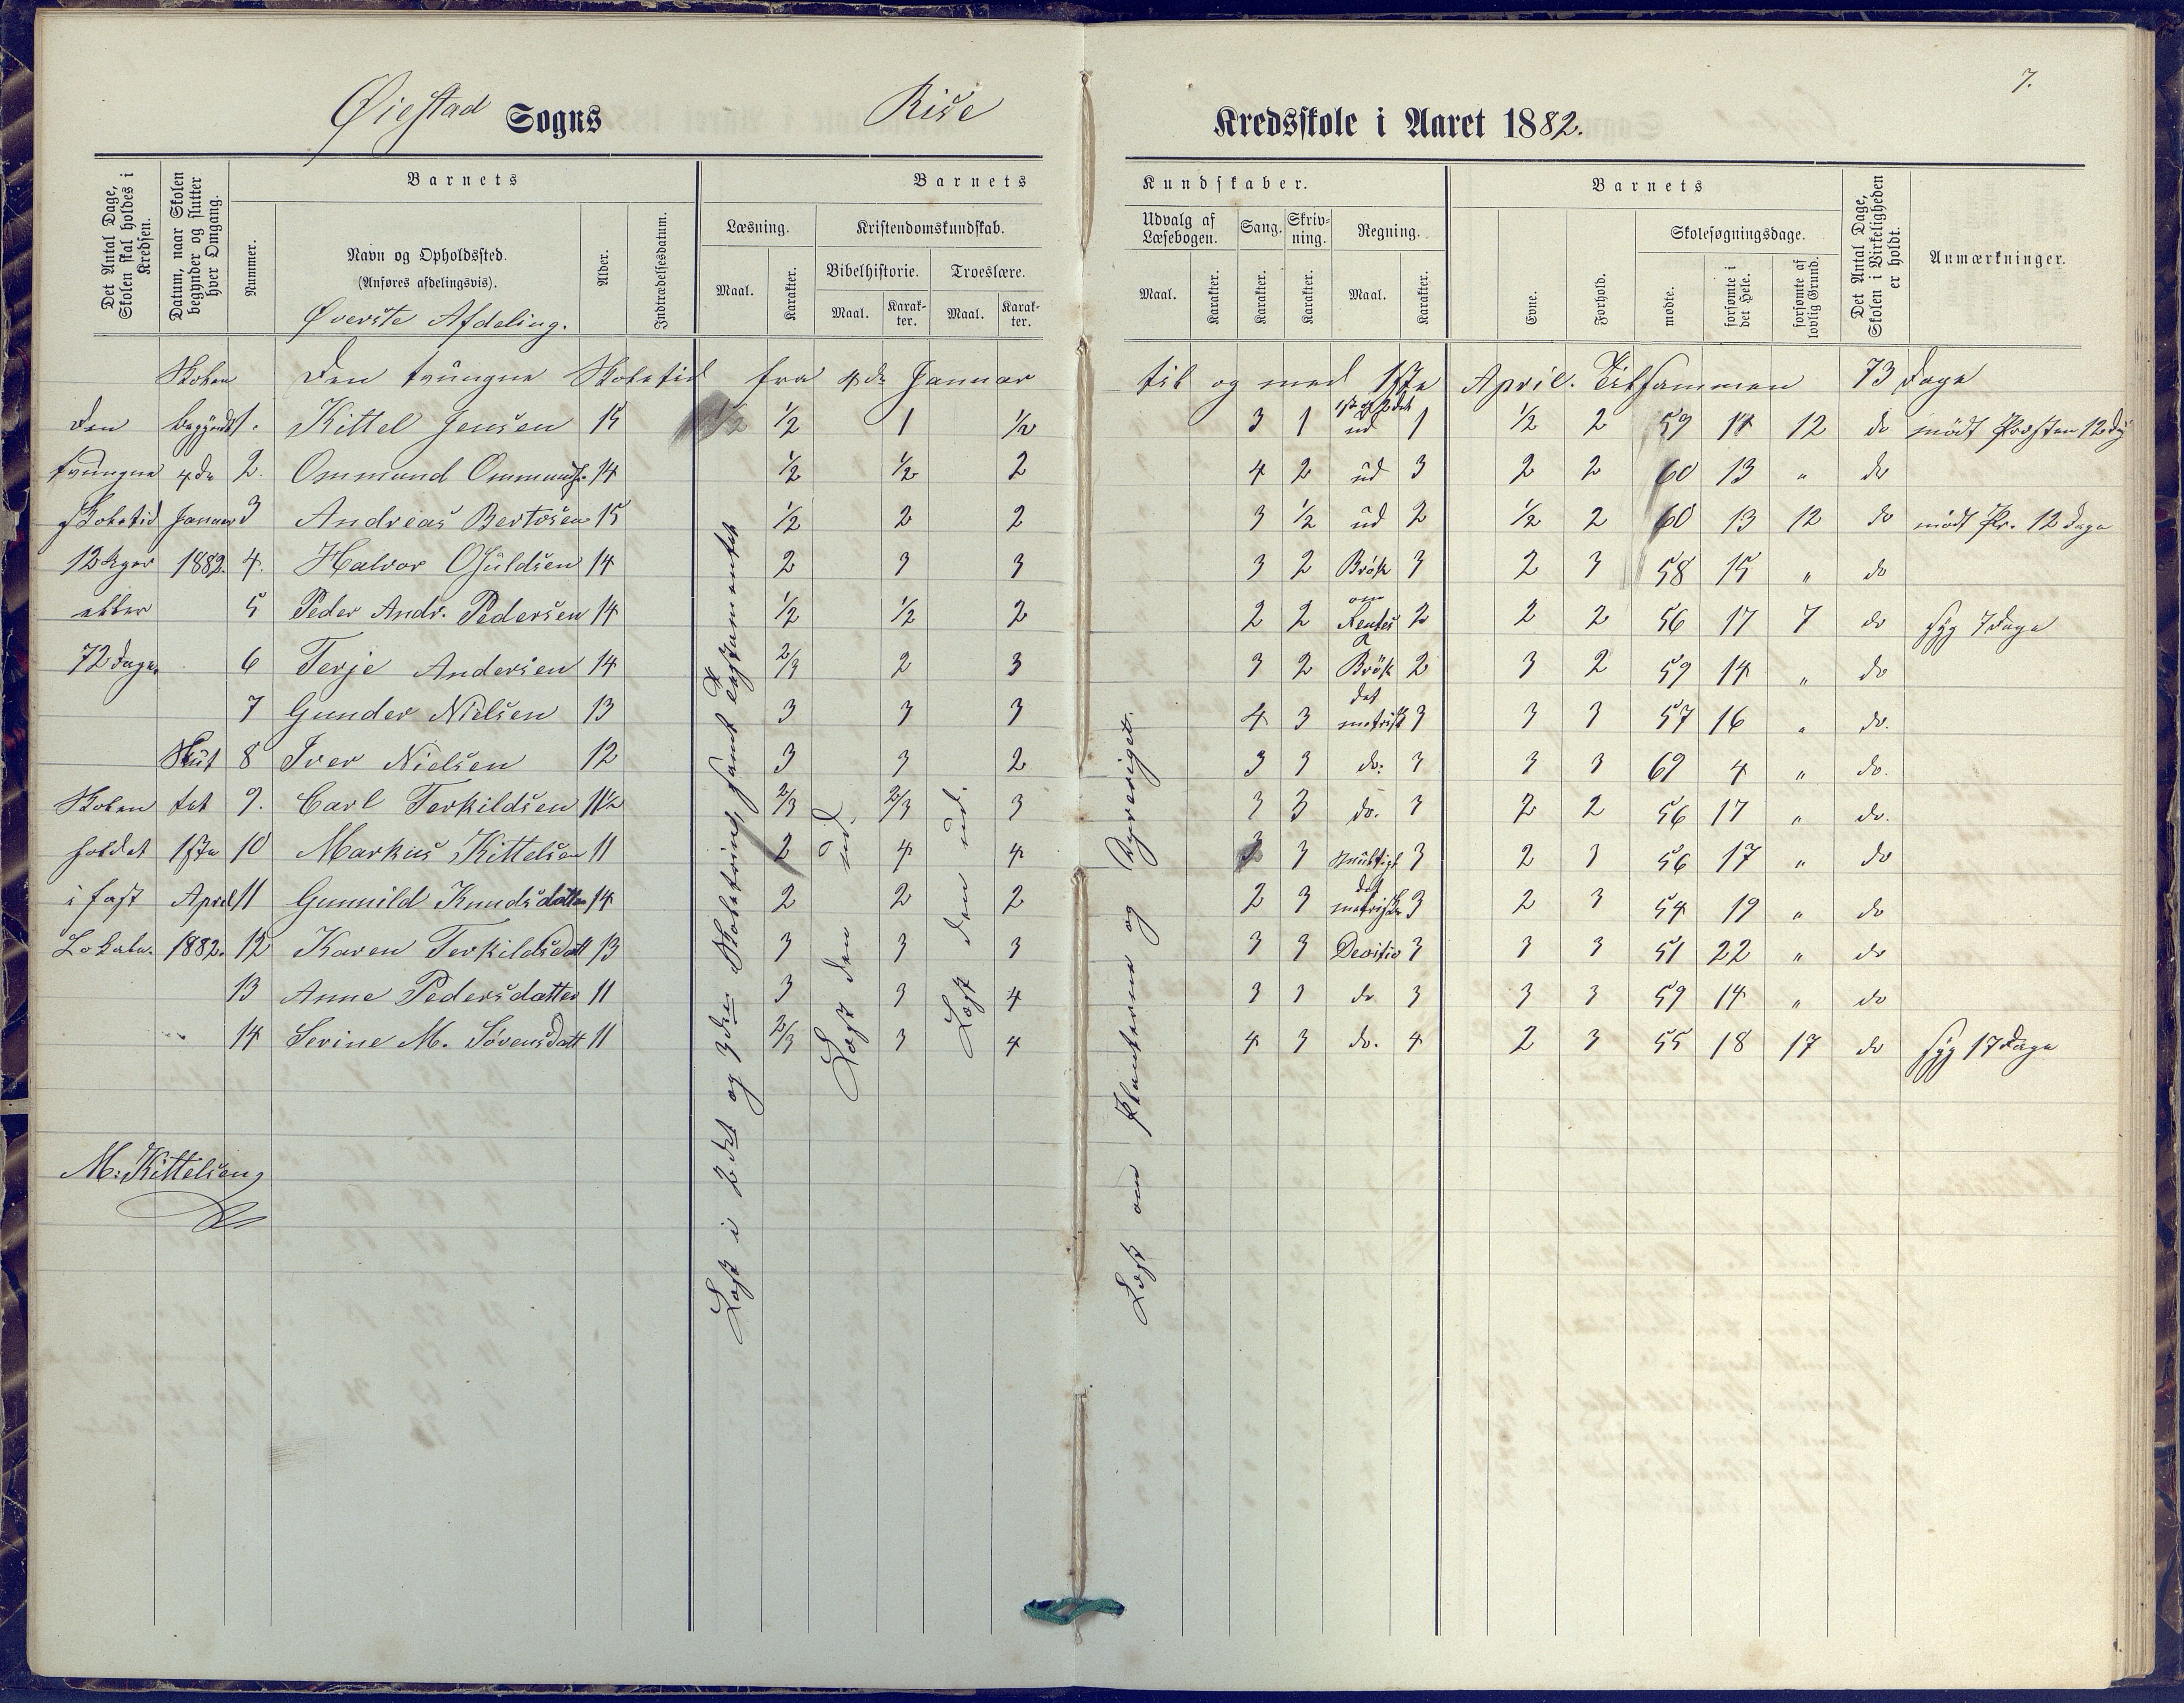 7.
Øiestad Sogns Rise Kredsskole i Aaret 1882.
Det Antal Dage, Skolen skal holdes i Kredsen.
Datum, naar Skolen begynder og slutter hver Omgang.
Barnets
Nummer.
Navn og Opholdssted.
(Anføres afdelingsvis).
Øverste Afdeling.
Alder.
Indtrædelsesdatum.
Barnets Kundskaber.
Læsning.
Maal.
Karakter.
Kristendomskundskab.
Bibelhistorie.
Maal.
Karakter.
Troeslære.
Maal.
Karakter.
Udvalg af Læsebogen.
Maal.
Karakter.
Sang.
Karakter.
Skrivning.
Karakter.
Regning.
Maal.
Karakter.
Barnets
Evne.
Forhold.
Skolesøgningsdage.
mødte.
forsømte i det Hele.
forsømte af lovlig Grund.
Det Antal Dage, Skolen i Virkeligheden er holdt.
Anmærkninger.
Den tvungne Skoletid fra 4de Januar til og med 1ste April. Tilsammen 73 Dage
Den tvungne Skoletid 12 Uger eller 72 Dage.
Skolen holdt i fast Lokale.
Skolen begyndt 4de Januar 1882.
Sluttet 1ste April 1882.
1. Kittel Jensen 15 1/2 1/2 1 1/2 3 1 ud 1 1/2 2 59 14 12 do mødt Præsten 12 Dg
2. Ommund Ommunds. 14 1/2 1/2 2 4 2 ud 3 2 2 60 13 " do
3 Andreas Bertosen 15 1/2 2 2 3 1/2 ud 2 1/2 2 60 13 12 do mødt Pr. 12 Dage
4. Halvor Osuldsen 14 2 3 3 3 2 Brøk 3 2 3 58 15 " do
5 Peder Andr. Pedersen 14 1/2 1/2 2 2 2 Rentes 2 2 2 56 17 7 do syg 7 Dage
6 Terje Andersen 14 2/3 2 3 3 2 Brøk 2 3 2 59 14 " do
7 Gunder Nielsen 13 3 3 3 4 3 det metrisk 3 3 3 57 16 " do.
8 Iver Nielsen 12 3 3 2 3 3 do. 3 3 3 69 4 " do.
9. Carl Terkildsen 11 1/2 2/3 2/3 3 3 3 do. 3 2 2 56 17 " do.
10 Markus Kittelsen 11 2 4 4 3 3 Multipl 3 2 3 56 17 " do
11 Gunnild Knudsdatter 14 2 2 2 2 3 det metriske 3 2 3 54 19 " do
12 Karen Terkildsdatt 13 3 3 3 3 3 Devisio 3 3 3 51 22 " do
13 Anne Pedersdatter 11 3 3 4 3 3 do 3 3 3 59 14 " do
14 Serine M. Sørensdatt 11 2/3 3 4 4 3 do. 4 2 3 55 18 17 do syg 17 Dage
Læst i 2det og 3die Skoletrin, samt Testamentet
Læst den ud.
Læst den ud.
Læst om Planterne og Dyreriget.
M. Kittelsen,